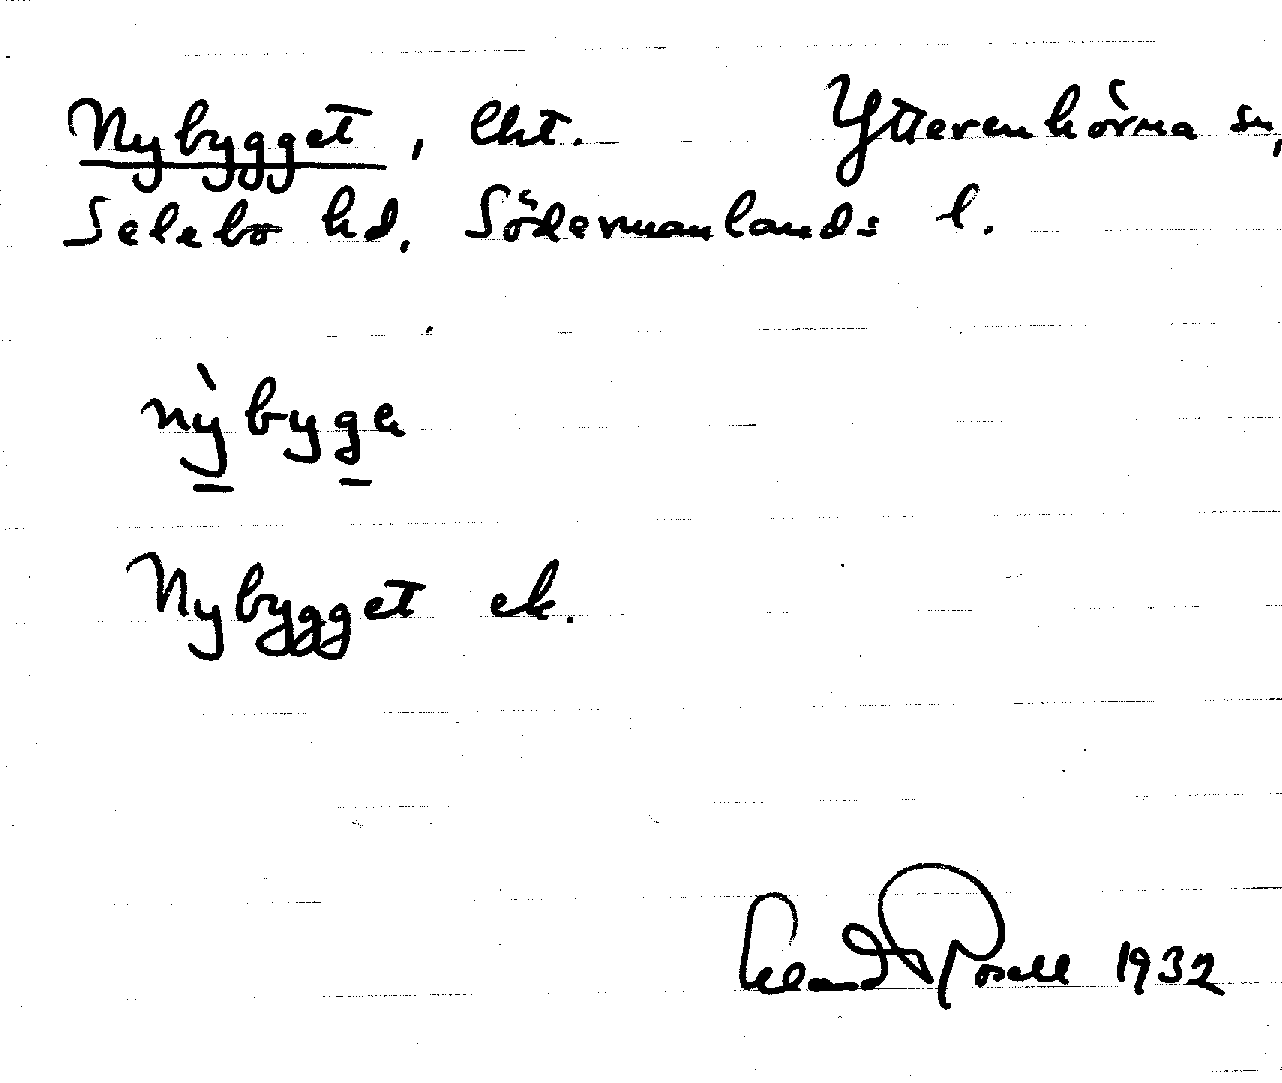 Nybygget, lht. Ytterenhörna sn,
Selebo hd, Södermanlands l.
nỳbyge
Nybygget ek.
Rosell 1932